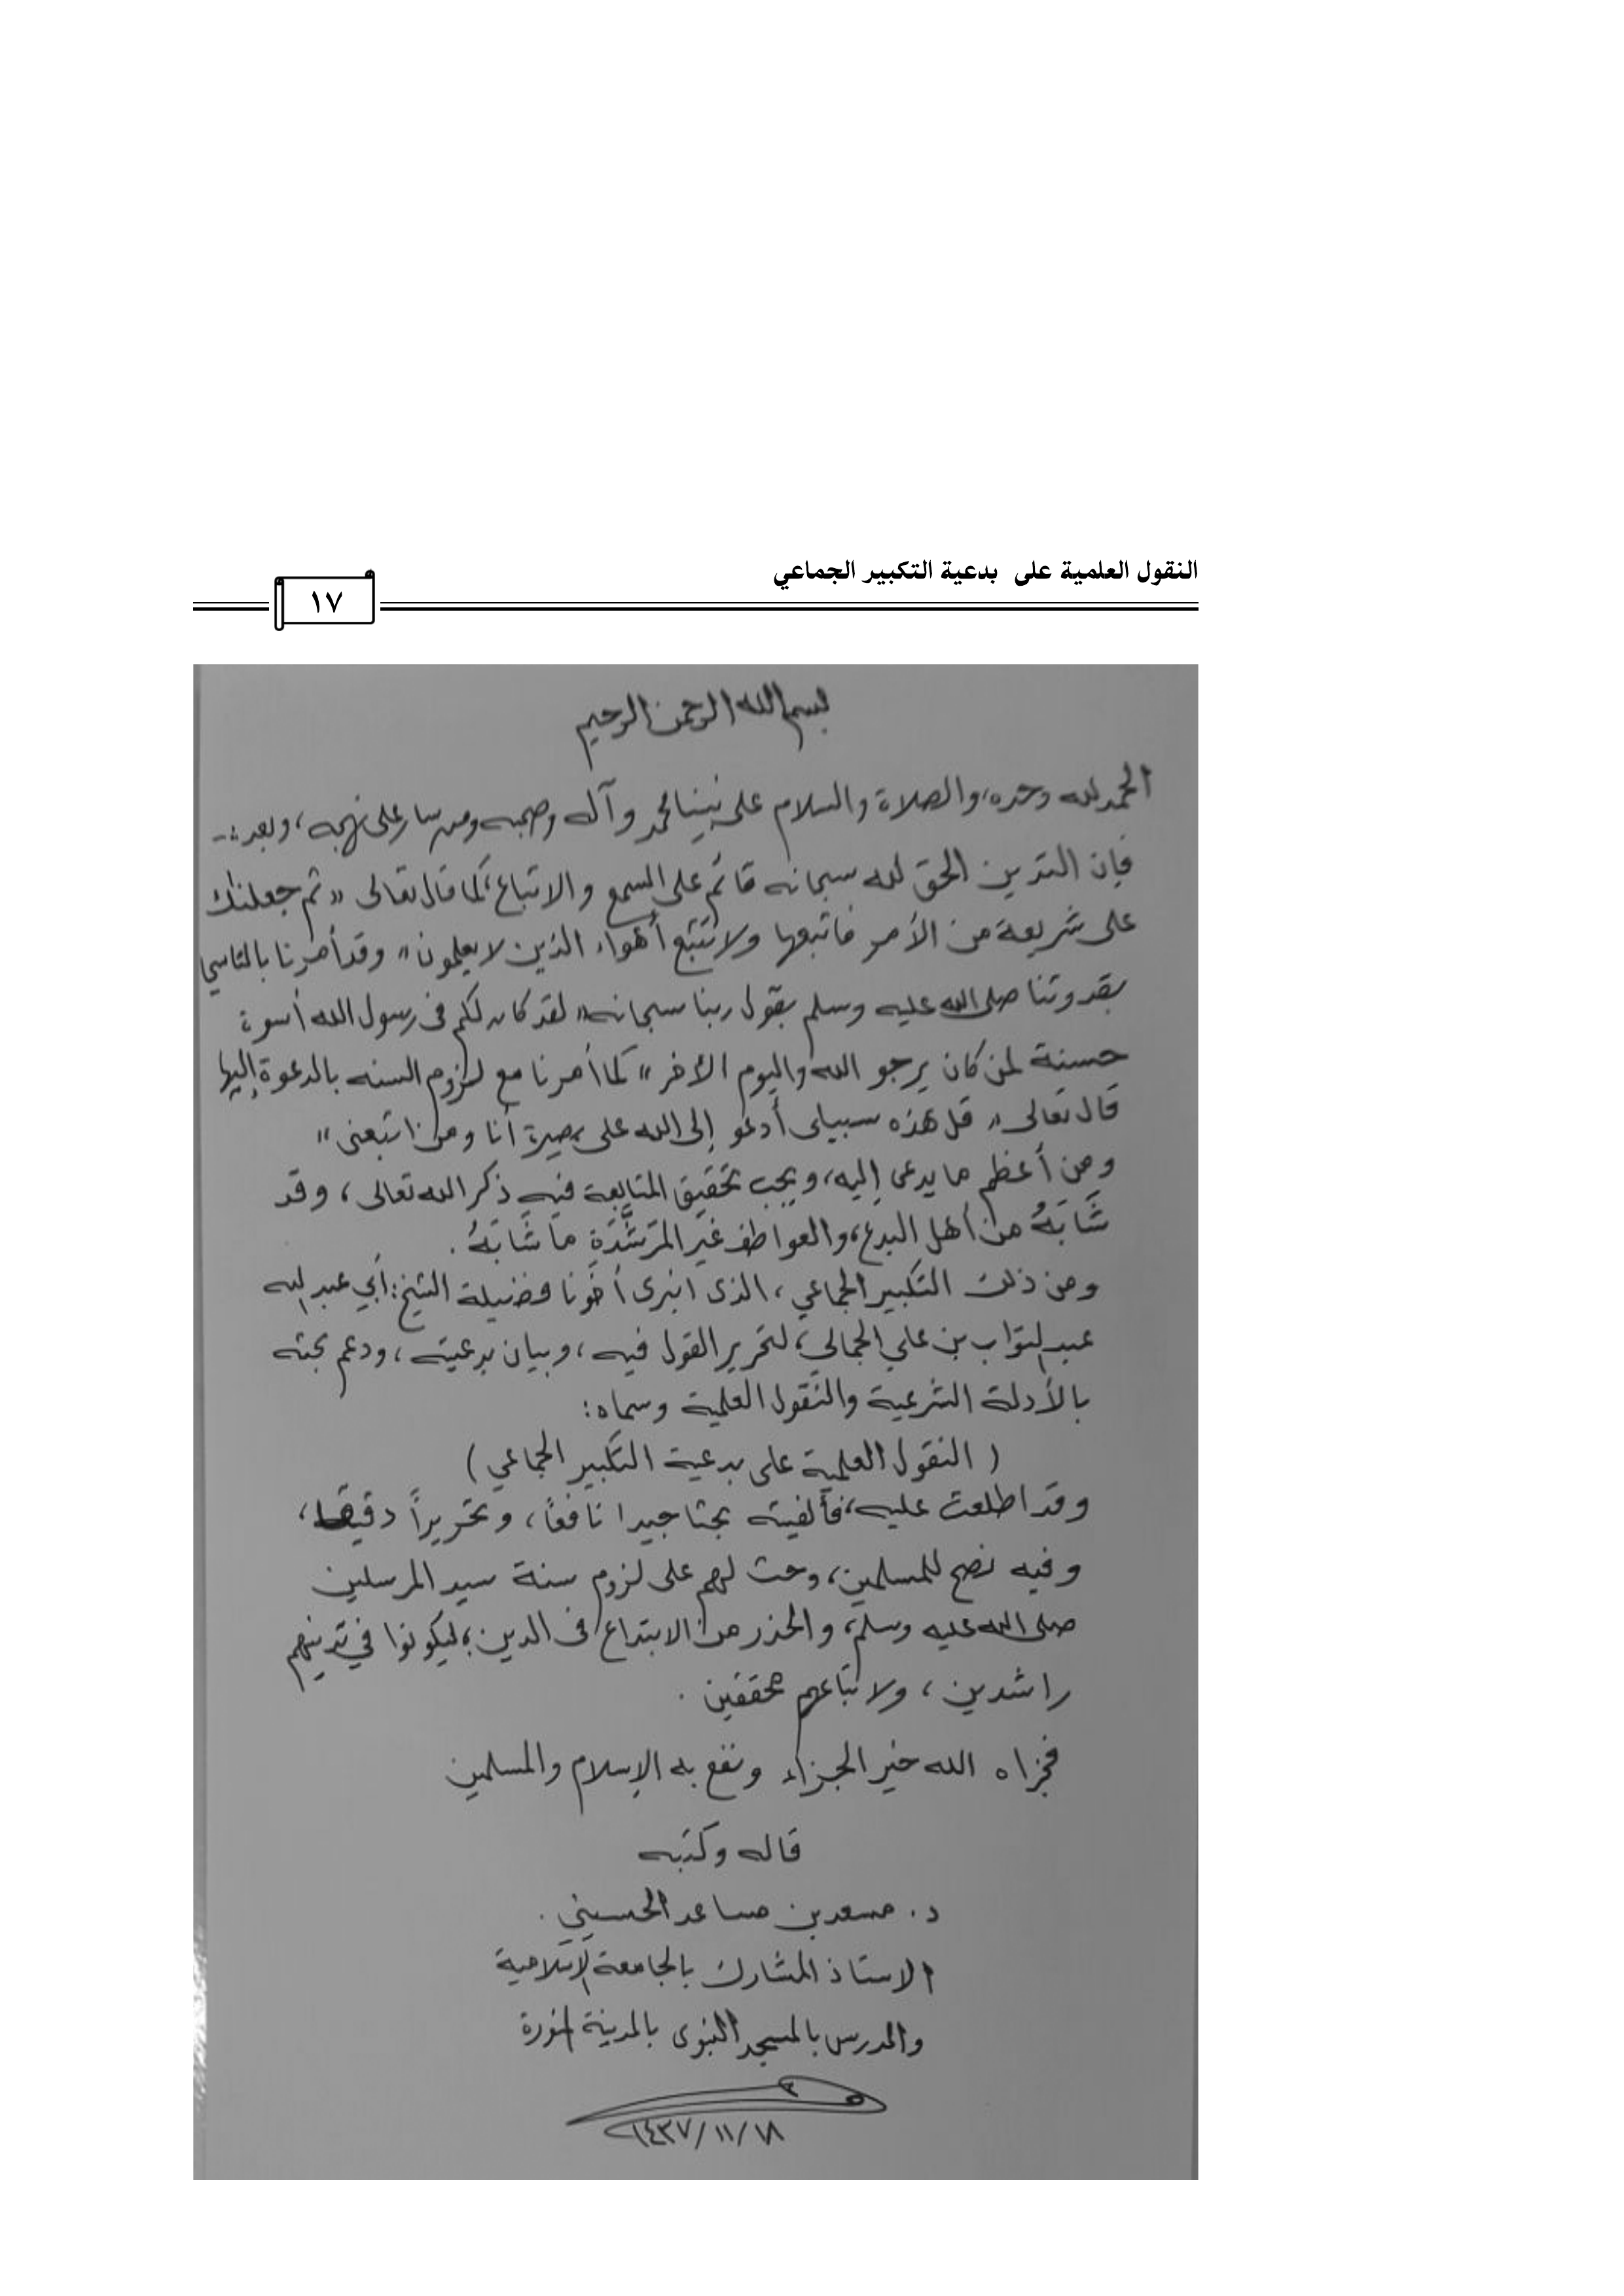 النقول العلمية على بدعية التكبير الجماعي
١٧
بسم الله الرحمن الرحيم
الحمد لله وحده، والصلاة والسلام على نبينا محمد وآله وصحبه ومن سار على نهجه، وبعد :-
فإن التدين الحق لله سبحانه قائم على السمع والاتباع، كما قال تعالى " ثم جعلناك
على شريعة من الأمر فاتبعها ولا تتبع أهواء الذين لا يعلمون " وقد أمرنا بالتأسي
بقدوتنا صلى الله عليه وسلم بقول ربنا سبحانه " لقد كان لكم فى رسول الله أسوة
حسنة لمن كان يرجو الله واليوم الأخر " كما أمرنا مع لزوم السنه بالدعوة إليها
قال تعالى " قل هذه سبيلى أدعو إلى الله على بصيرة أنا ومن اتبعنى "
ومن أعظم ما يدعى إليه، ويجب تحقيق المتابعة فيه ذكر الله تعالى، وقد
شَابَهُ من أهل البدع، والعواطف غير المترشِّدَةِ ما شَابَهُ .
ومن ذلك التكبير الجماعي، الذى انبرى أخونا فضيلة الشيخ: أبي عبد الله
عبد التواب بن علي الجمالي، لتحرير القول فيه، وبيان بدعيته، ودعم بحثه
بالأدلة الشرعية والنقول العلمية وسماه:
( النقول العلمية على بدعية التكبير الجماعي )
وقد اطلعت عليه، فألفيته بحثا جيدا نافعًا، وتحريراً دقيقا،
وفيه نصح للمسلمين، وحث لهم على لزوم سنة سيد المرسلين
صلى الله عليه وسلم، والحذر من الابتداع فى الدين؛ ليكونوا في تدينهم
راشدين، ولاتباعهم محققين .
فجزاه الله خير الجزاء ونفع به الإسلام والمسلمين
قاله وكتبه
د. مسعد بن مساعد الحسيني .
الاستاذ المشارك بالجامعة الإسلامية
والمدرس بالمسجد النبوى بالمدينة المنورة
١٤٣٧/١١/١٨